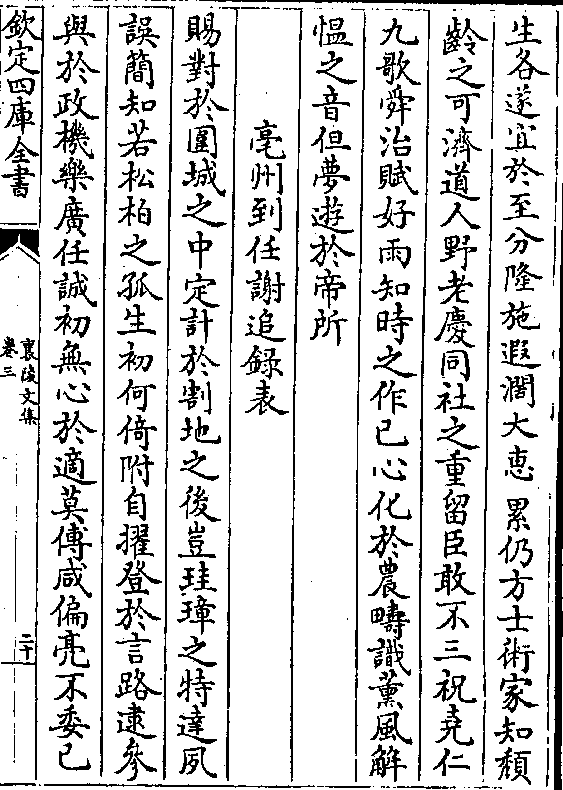 生各遂宜於至分隆施遐濶大恵累仍方士術家知頽
齡之可濟道人野老慶同社之重留臣敢不三祝堯仁
九歌舜治賦好雨知時之作已心化於農疇識薰風解
愠之音但夢遊於帝所
亳州到任謝追録表
賜對於圍城之中定計於割地之後豈珪璋之特達夙
誤簡知若松柏之孤生初何倚附自擢登於言路逮參
與於政機樂廣任誠初無心於適莫傅咸偏亮不委已
欽定四庫全書
襄陵文集
卷三
二十